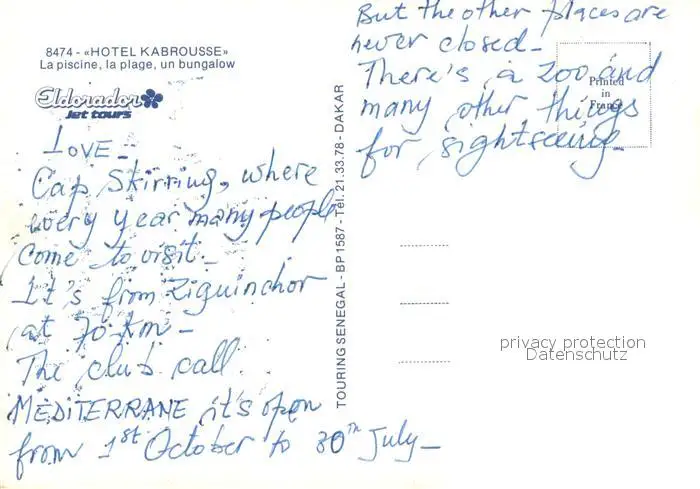 8474 - «HOTEL KABROUSSE»
La piscine, la plage, un bungalow
Eldorador
Jet tours
LOVE -
Cap Skirring, where
every year many people
come to visit -
It's from Ziguinchor
at 70 km -
The club call
MEDITERRANE it's open
from 1st October to 30th July -
TOURING SENEGAL - BP1587 - Tél. 21.33.78 - DAKAR
But the other places are
never closed -
There's a zoo and
many other things
for sightseeing -
Printed
in
France
privacy protection
Datenschutz